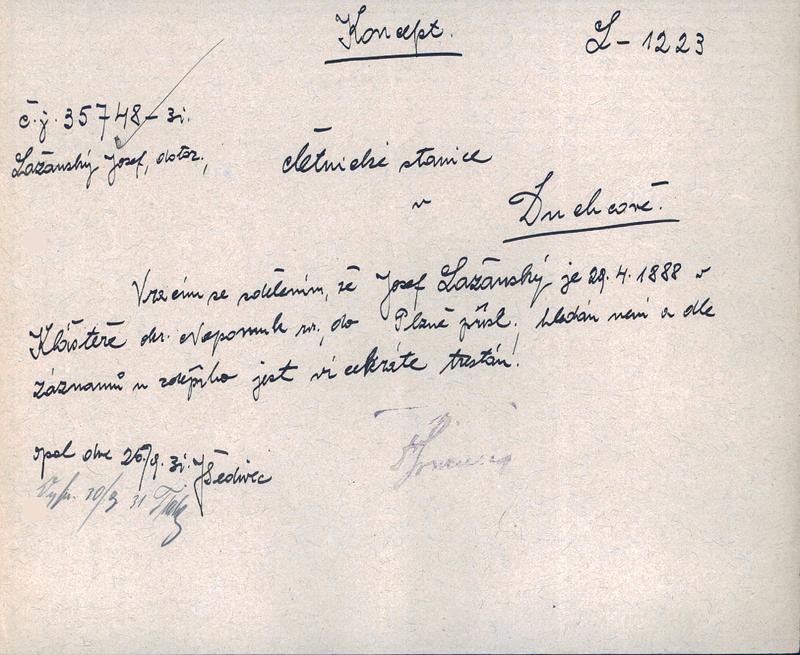 Koncept.
L - 1223
č.j. 35748 - 31.
Lažanský Josef, dotaz.,
četnické stanice
v
Duchcově.
Vracím se sdělením, že Josef Lažanský je 29.4.1888 v
Klášteře okr. Nepomuk nar., do Plzně přísl., hledán není a dle
záznamů u zdejšího jest vícekráte trestán.
opol dne 26/9. 31. JŠedivec
Vyhr. 30/9 31